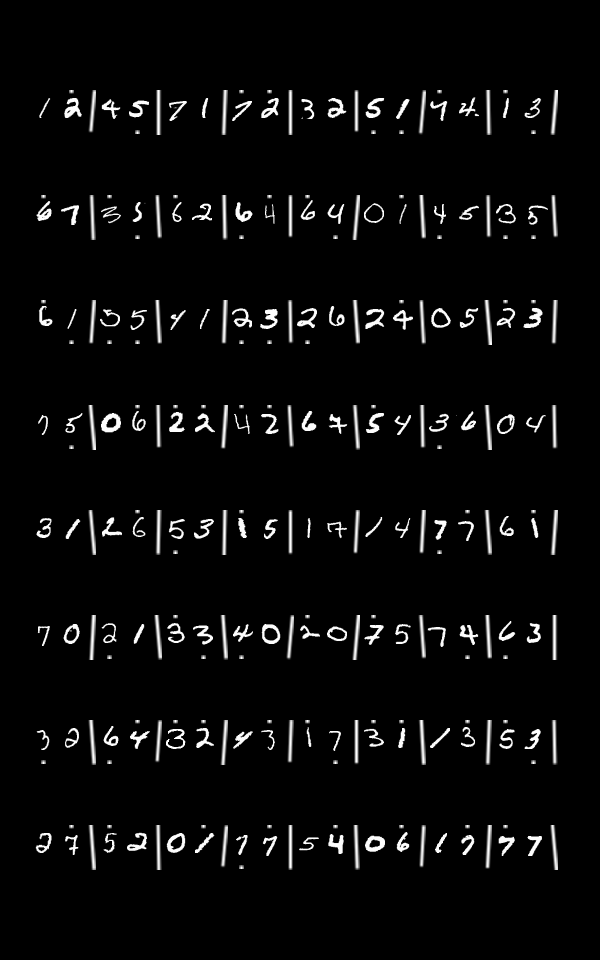 1 2̇ | 4 5̣ | 7 1 | 7̇ 2̇ | 3 2 | 5̣ 1̣ | 4̇ 4 | 1̇ 3̣ |
6̇ 7 | 3̇ 5̣ | 6̇ 2 | 6̣ 4̇ | 6̇ 4̣ | 0 1̇ | 4̣ 5 | 3 5̣ |
6̇ 1̣ | 5̣ 5̣ | 4 1 | 2̣ 3̣ | 2̣ 6 | 2 4̇ | 0 5 | 2̇ 3̇ |
7 5̣ | 0 6̇ | 2̇ 2̇ | 4̇ 2̇ | 6 7 | 5̇ 4 | 3̣ 6 | 0 4 |
3 1 | 2 6̇ | 5̣ 3 | 1̇ 5 | 1 7 | 1 4 | 7̣ 7̇ | 6 1̇ |
7 0 | 2̣ 1 | 3̇ 3̣ | 4̣ 0 | 2̇ 0 | 7̇ 5 | 7 4̣ | 6̣ 3 |
3̣ 2 | 6̣ 4 | 3 2̇ | 4 3̇ | 1̇ 7̣ | 3̇ 1̇ | 1 3̇ | 5̇ 3̣ |
2 7̇ | 5̇ 2 | 0 1̇ | 7̣ 7̇ | 5 4̇ | 0 6̇ | 1 7̇ | 7̇ 7 |